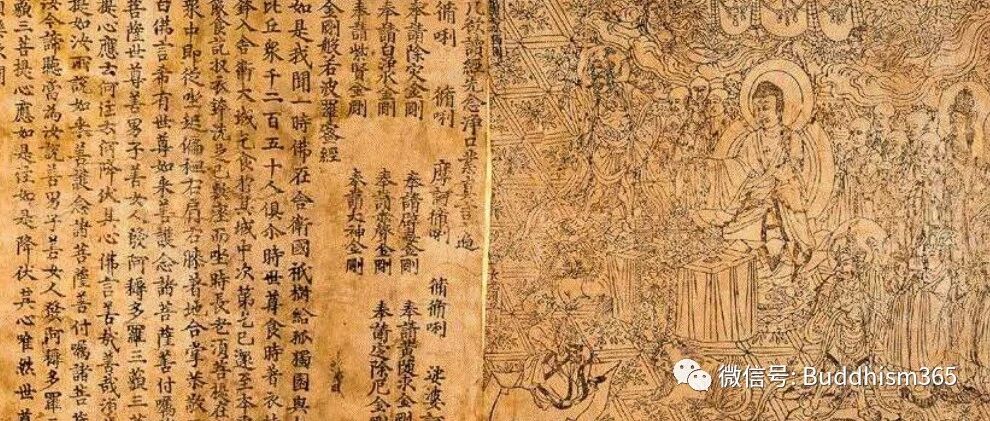 凡欲讀經先念淨口業真言一遍
脩唎 脩唎 摩訶脩唎 脩脩唎 娑婆
奉請除災金剛 奉請辟毒金剛 奉請黃隨求金剛
奉請白淨水金剛 奉請赤聲金剛 奉請定除厄金剛
奉請紫賢金剛 奉請大神金剛
金剛般若波羅蜜經
如是我聞一時佛在舍衛國祇樹給孤獨園與
比丘衆千二百五十人俱尒時世尊食時著衣持
鉢入舍衛大城乞食於其城中次第乞已還至本
飯食訖收衣鉢洗足已敷座而坐時長老須菩提在
衆中即從座起偏袒右肩右膝著地合掌恭敬
白佛言希有世尊如來善護念諸菩薩善付囑
菩薩世尊善男子善女人發阿耨多羅三藐三菩
提心應云何住云何降伏其心佛言善哉善哉須
提如汝所說如來善護念諸菩薩善付囑諸菩薩
汝今諦聽當為汝說善男子善女人發阿耨多羅三
藐三菩提心應如是住如是降伏其心唯然世尊
微信号: Buddhism365